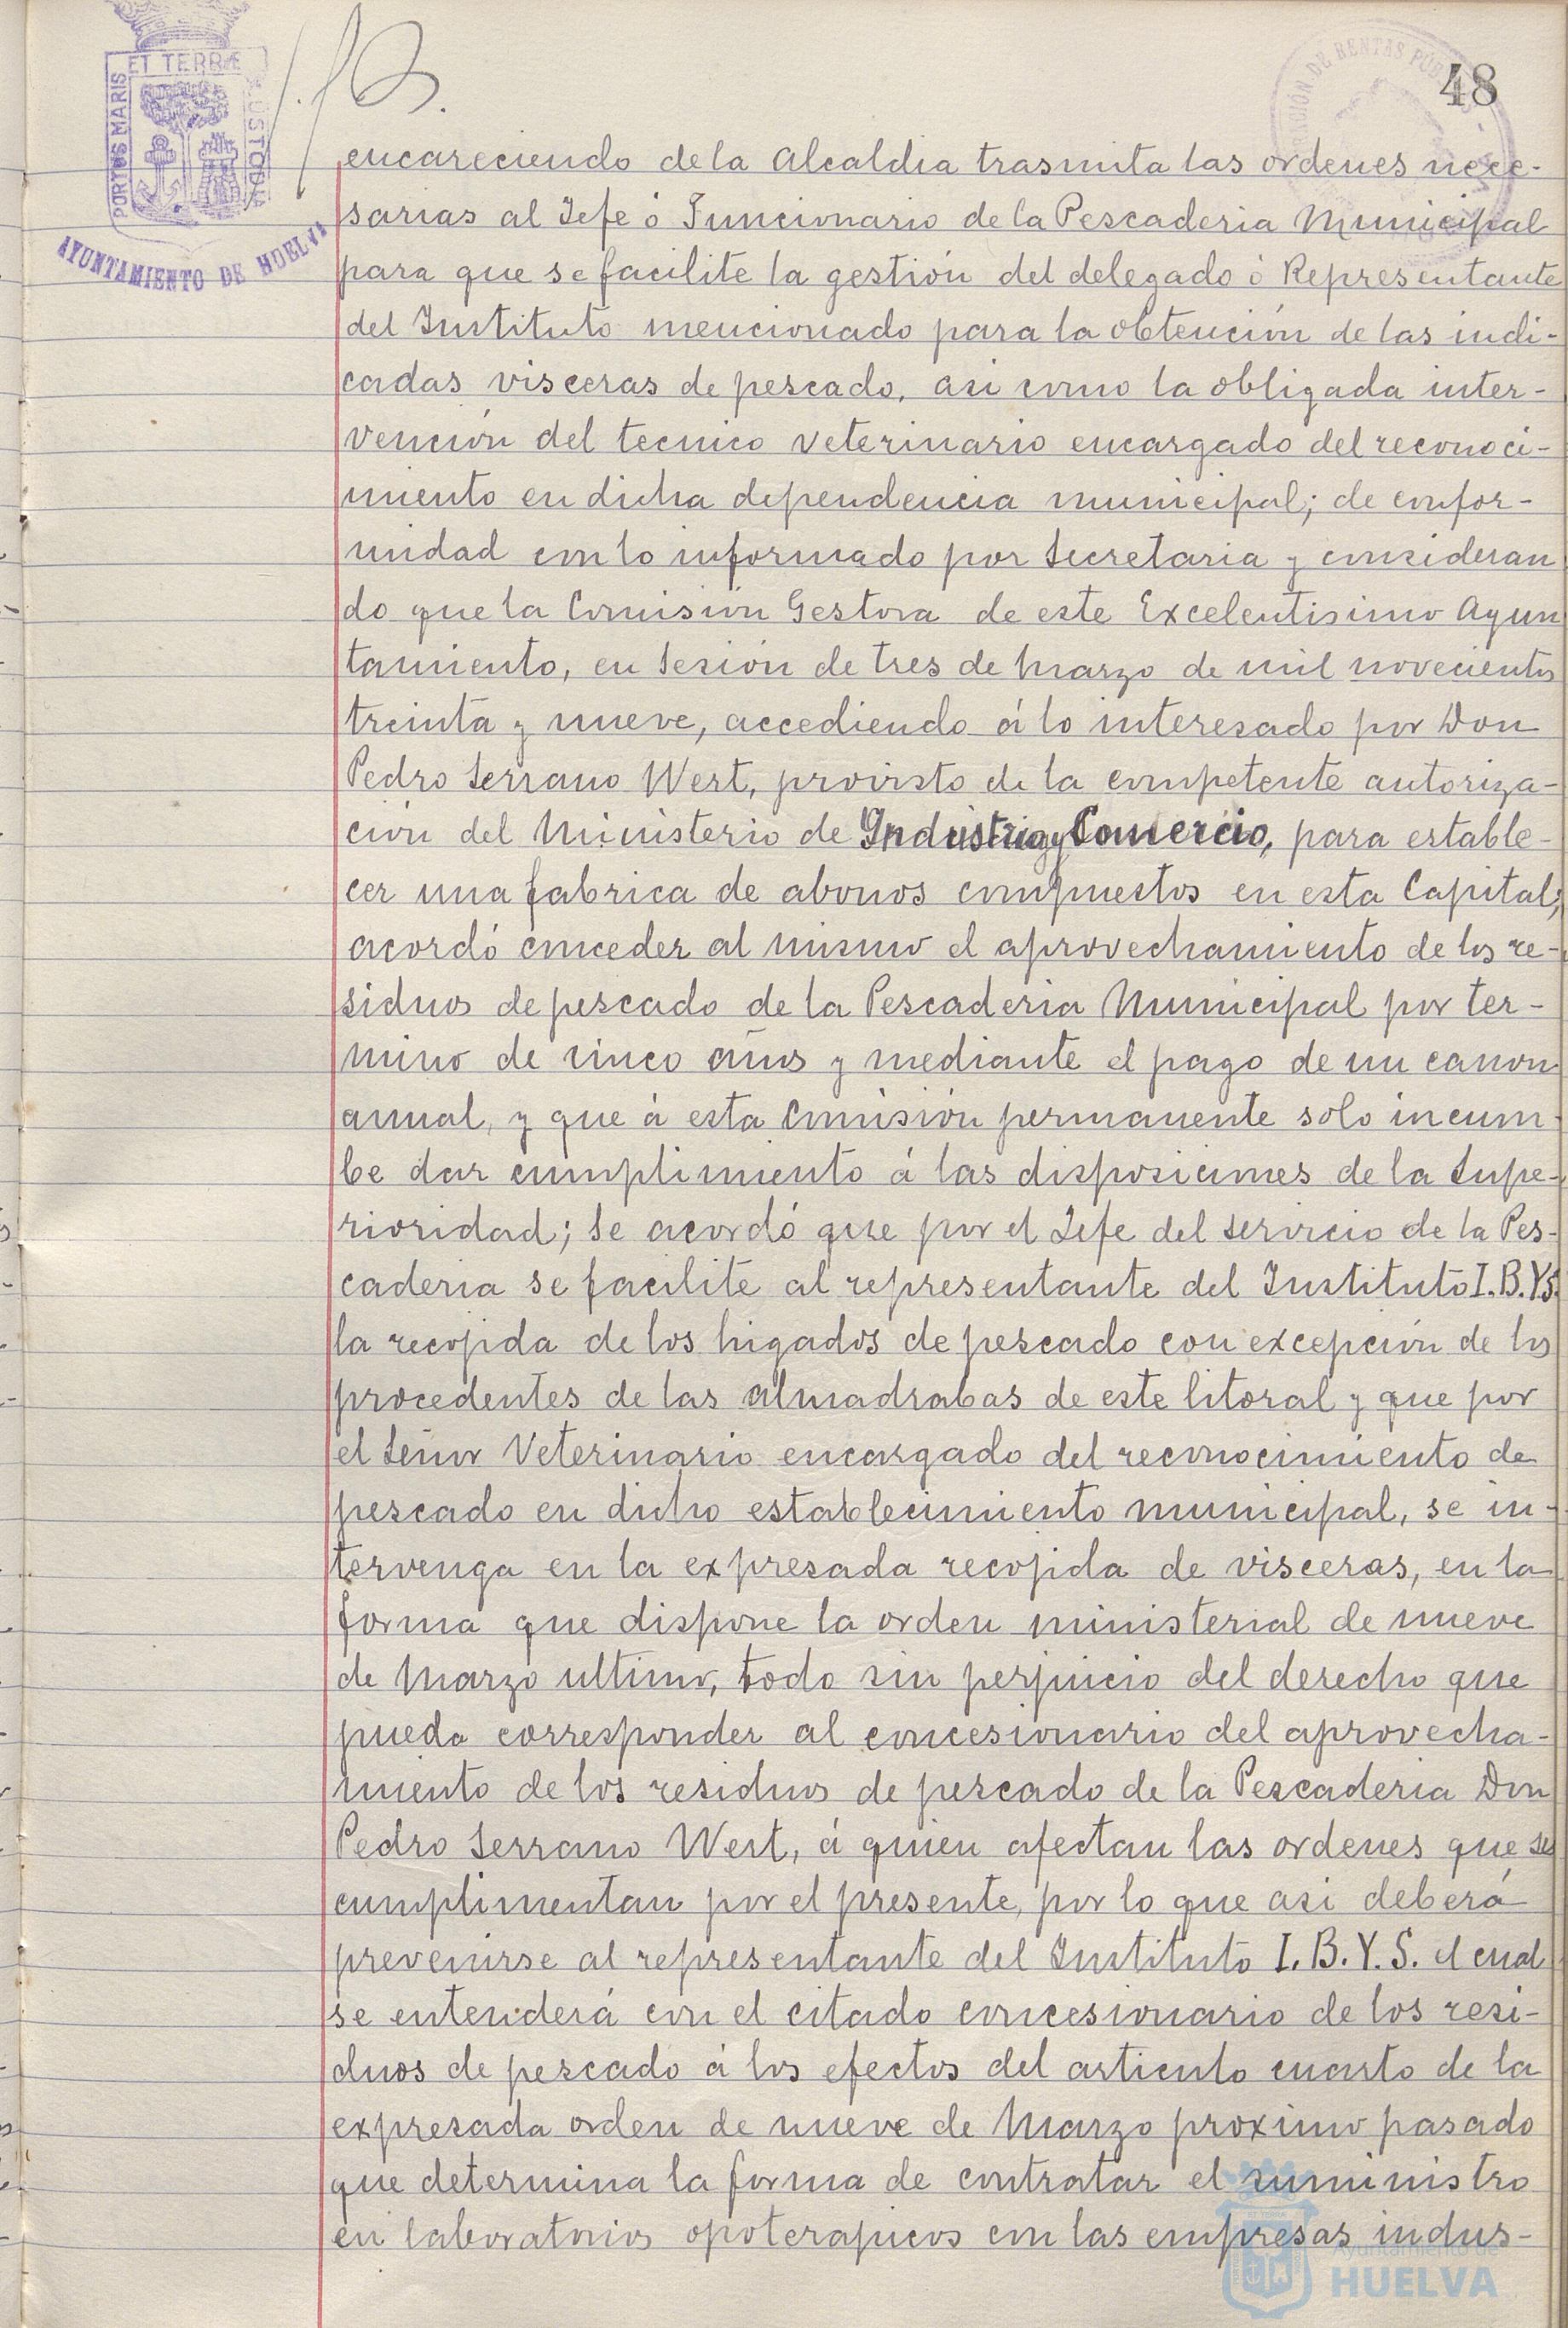 48
PORTUS MARIS ET TERRÆ CUSTODIA
AYUNTAMIENTO DE HUELVA
encareciendo de la Alcaldia trasmita las ordenes nece-
sarias al Jefe ó Funcionario de la Pescaderia Municipal
para que se facilite la gestión del delegado ó Representante
del Instituto mencionado para la obtención de las indi-
cadas visceras de pescado, asi como la obligada inter-
vención del tecnico veterinario encargado del reconoci-
miento en dicha dependencia municipal; de confor-
midad con lo informado por Secretaria y consideran
do que la Comisión Gestora de este Excelentisimo Ayun
tamiento, en Sesión de tres de Marzo de mil novecientos
treinta y nueve, accediendo á lo interesado por Don
Pedro Serrano Wert, provisto de la competente autoriza-
ción del Ministerio de Industria y Comercio, para estable-
cer una fabrica de abonos compuestos en esta Capital;
acordó conceder al mismo el aprovechamiento de los re-
siduos de pescado de la Pescaderia Municipal por ter-
mino de cinco años y mediante el pago de un canon
anual, y que á esta Comisión permanente solo incum-
be dar cumplimiento á las disposiciones de la Supe-
rioridad; Se acordó que por el Jefe del servicio de la Pes-
caderia se facilite al representante del Instituto I.B.Y.S.
la recojida de los higados de pescado con excepción de los
procedentes de las almadrabas de este litoral y que por
el Señor Veterinario encargado del reconocimiento de
pescado en dicho establecimiento municipal, se in-
tervenga en la expresada recojida de visceras, en la
forma que dispone la orden ministerial de nueve
de Marzo ultimo, todo sin perjuicio del derecho que
pueda corresponder al concesionario del aprovecha-
miento de los residuos de pescado de la Pescaderia Don
Pedro Serrano Wert, á quien afectan las ordenes que se
cumplimentan por el presente, por lo que asi deberá
prevenirse al representante del Instituto I.B.Y.S. el cual
se entenderá con el citado concesionario de los resi-
duos de pescado á los efectos del articulo cuarto de la
expresada orden de nueve de Marzo proximo pasado
que determina la forma de contratar el suministro
en laboratorios opoterapicos con las empresas indus-
Ayuntamiento de
HUELVA